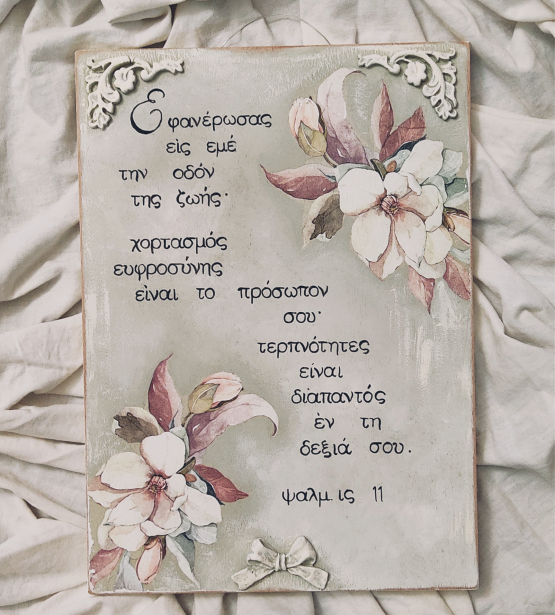 Εφανέρωσας
εἰς εμέ
την οδόν
της ζωής·
χορτασμός
ευφροσύνης
εἰναι το πρόσωπον
σου·
τερπνότητες
είναι
διαπαντός
ἐν τη
δεξιά σου.
ψαλμ. ις 11